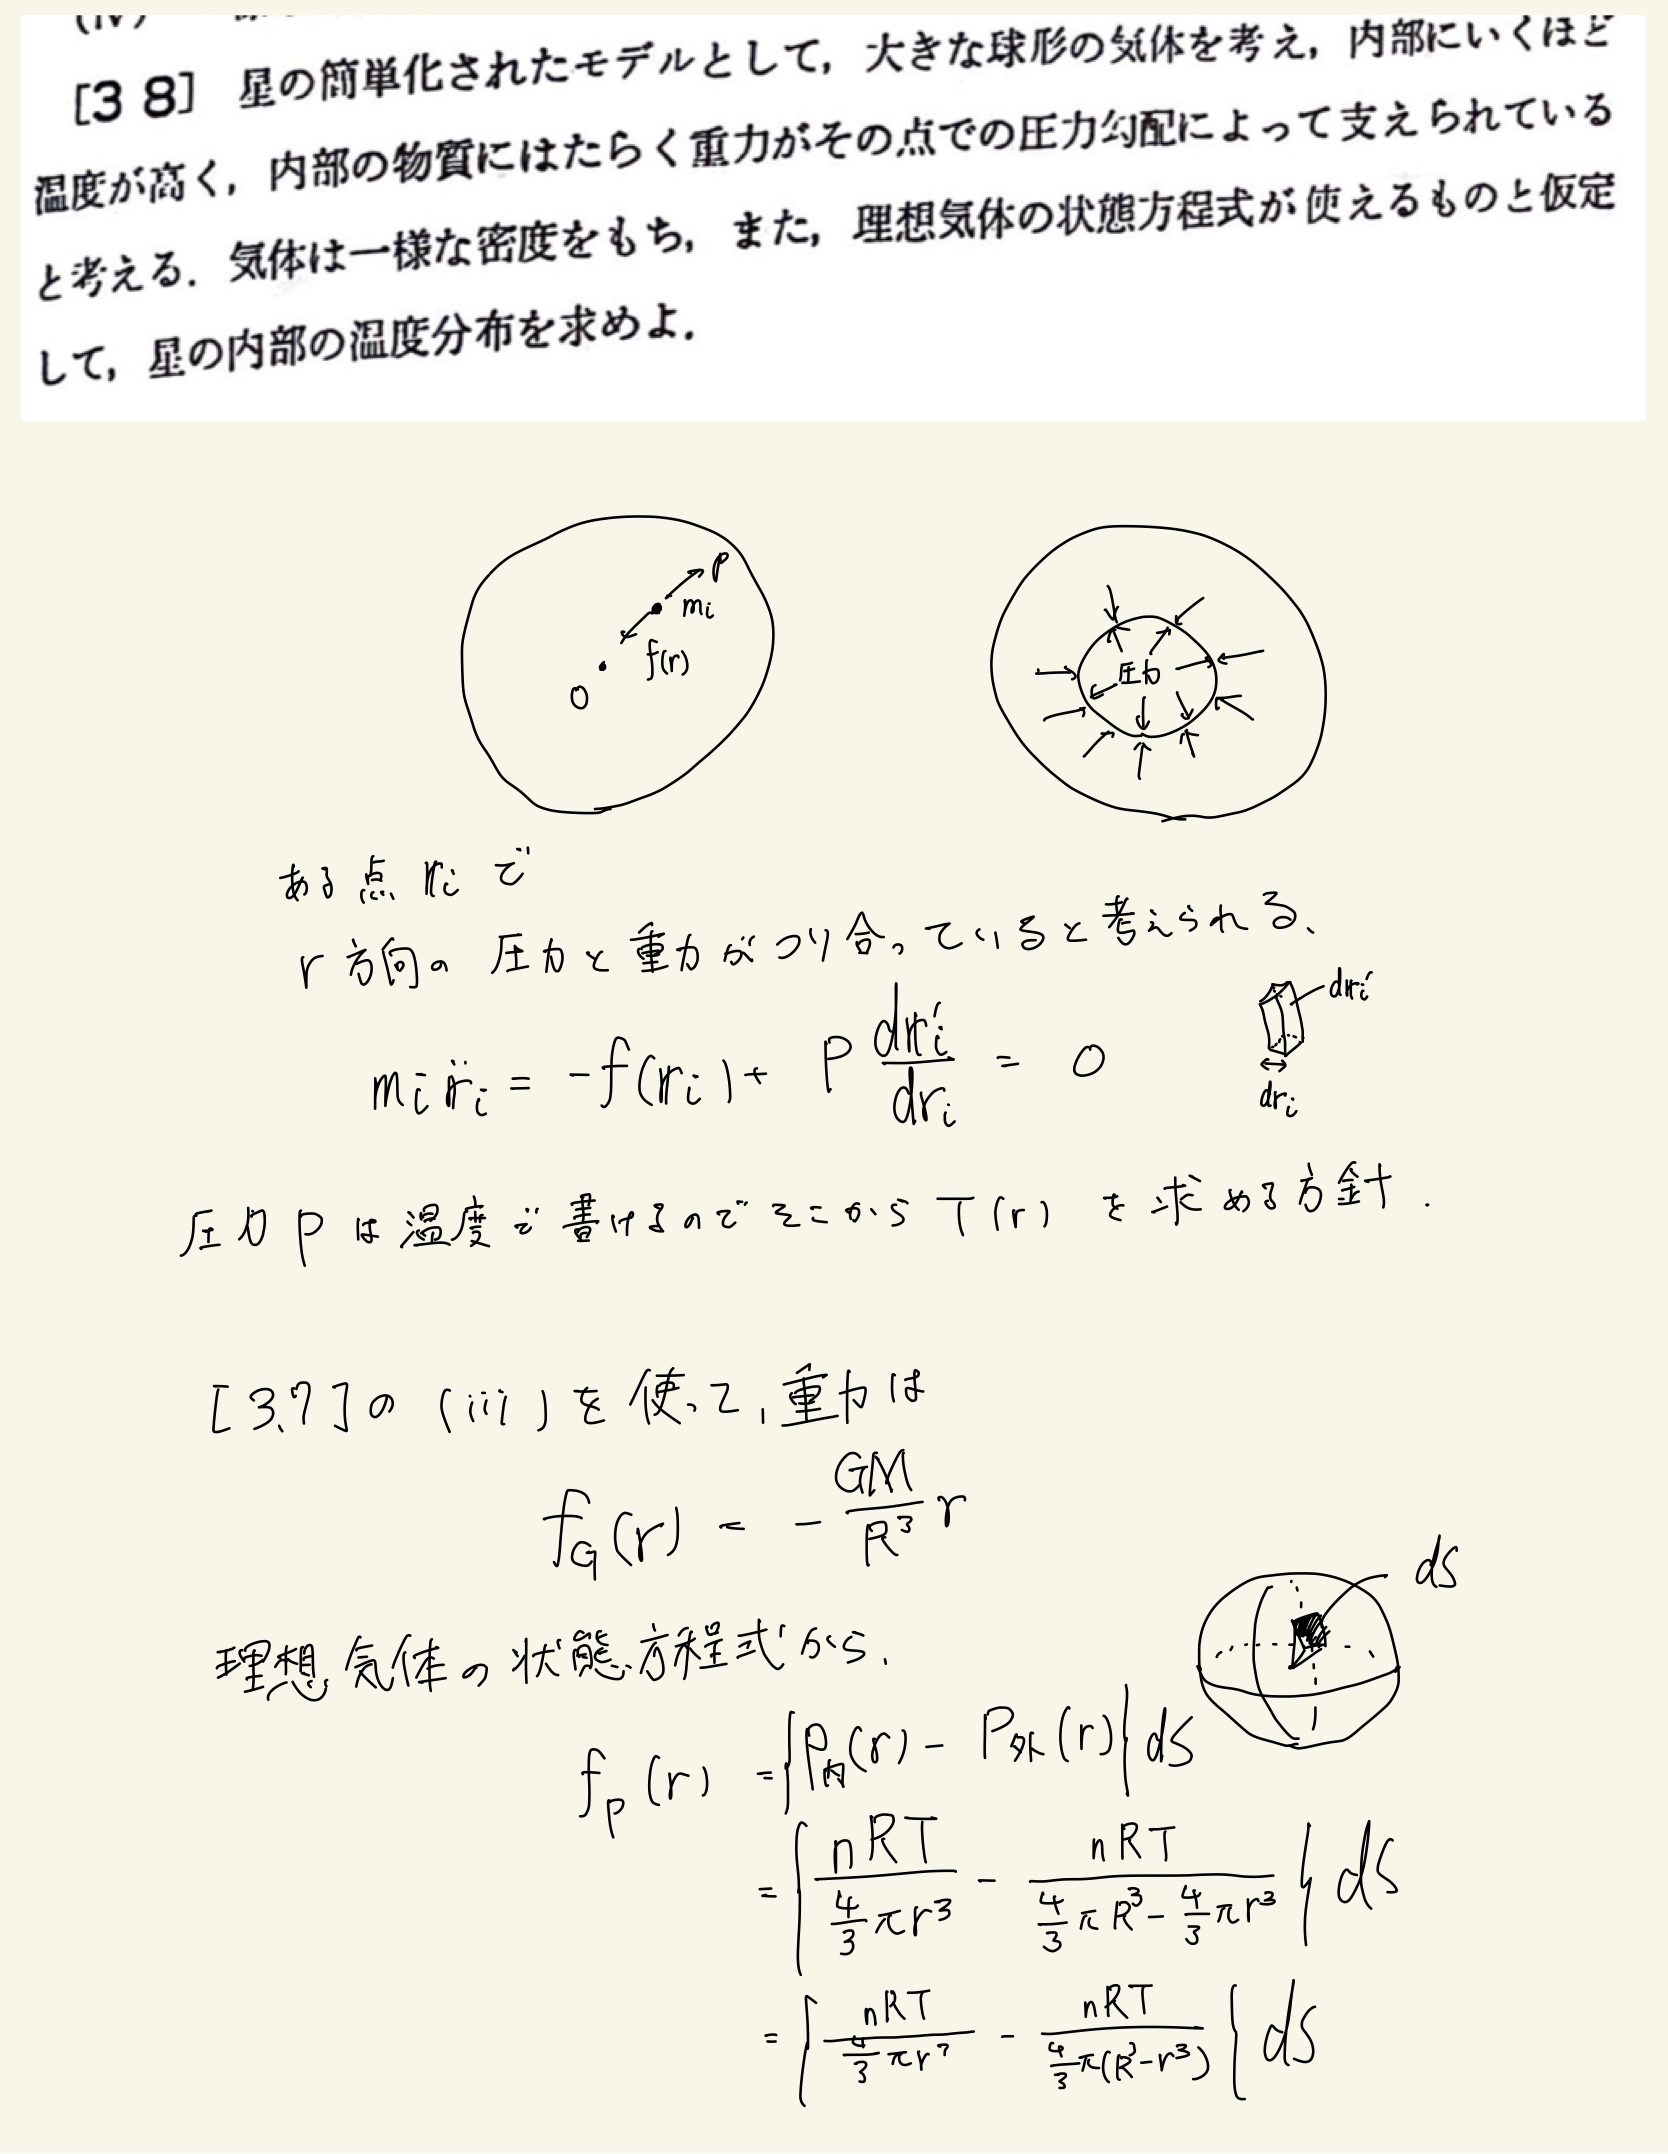 (iv)
[3 8] 星の簡単化されたモデルとして，大きな球形の気体を考え，内部にいくほど
温度が高く，内部の物質にはたらく重力がその点での圧力勾配によって支えられている
と考える．気体は一様な密度をもち，また，理想気体の状態方程式が使えるものと仮定
して，星の内部の温度分布を求めよ．
P
mi
f(r)
O
圧力
ある点 ri で
r 方向の 圧力と重力がつり合っていると考えられる、
dri'
dri
mi r̈i = -f(ri) + P dri'/dri = 0
圧力 P は温度で書けるのでそこから T(r) を求める方針．
[3.7]の (iii)を使って,重力は
fG(r) = - GM/R³ r
理想気体の状態方程式から,
dS
fp(r) = {P内(r) - P外(r)} dS
= { nRT/(4/3 πr³) - nRT/(4/3 πR³ - 4/3 πr³) } dS
= { nRT/(4/3 πr³) - nRT/(4/3 π(R³-r³)) } dS